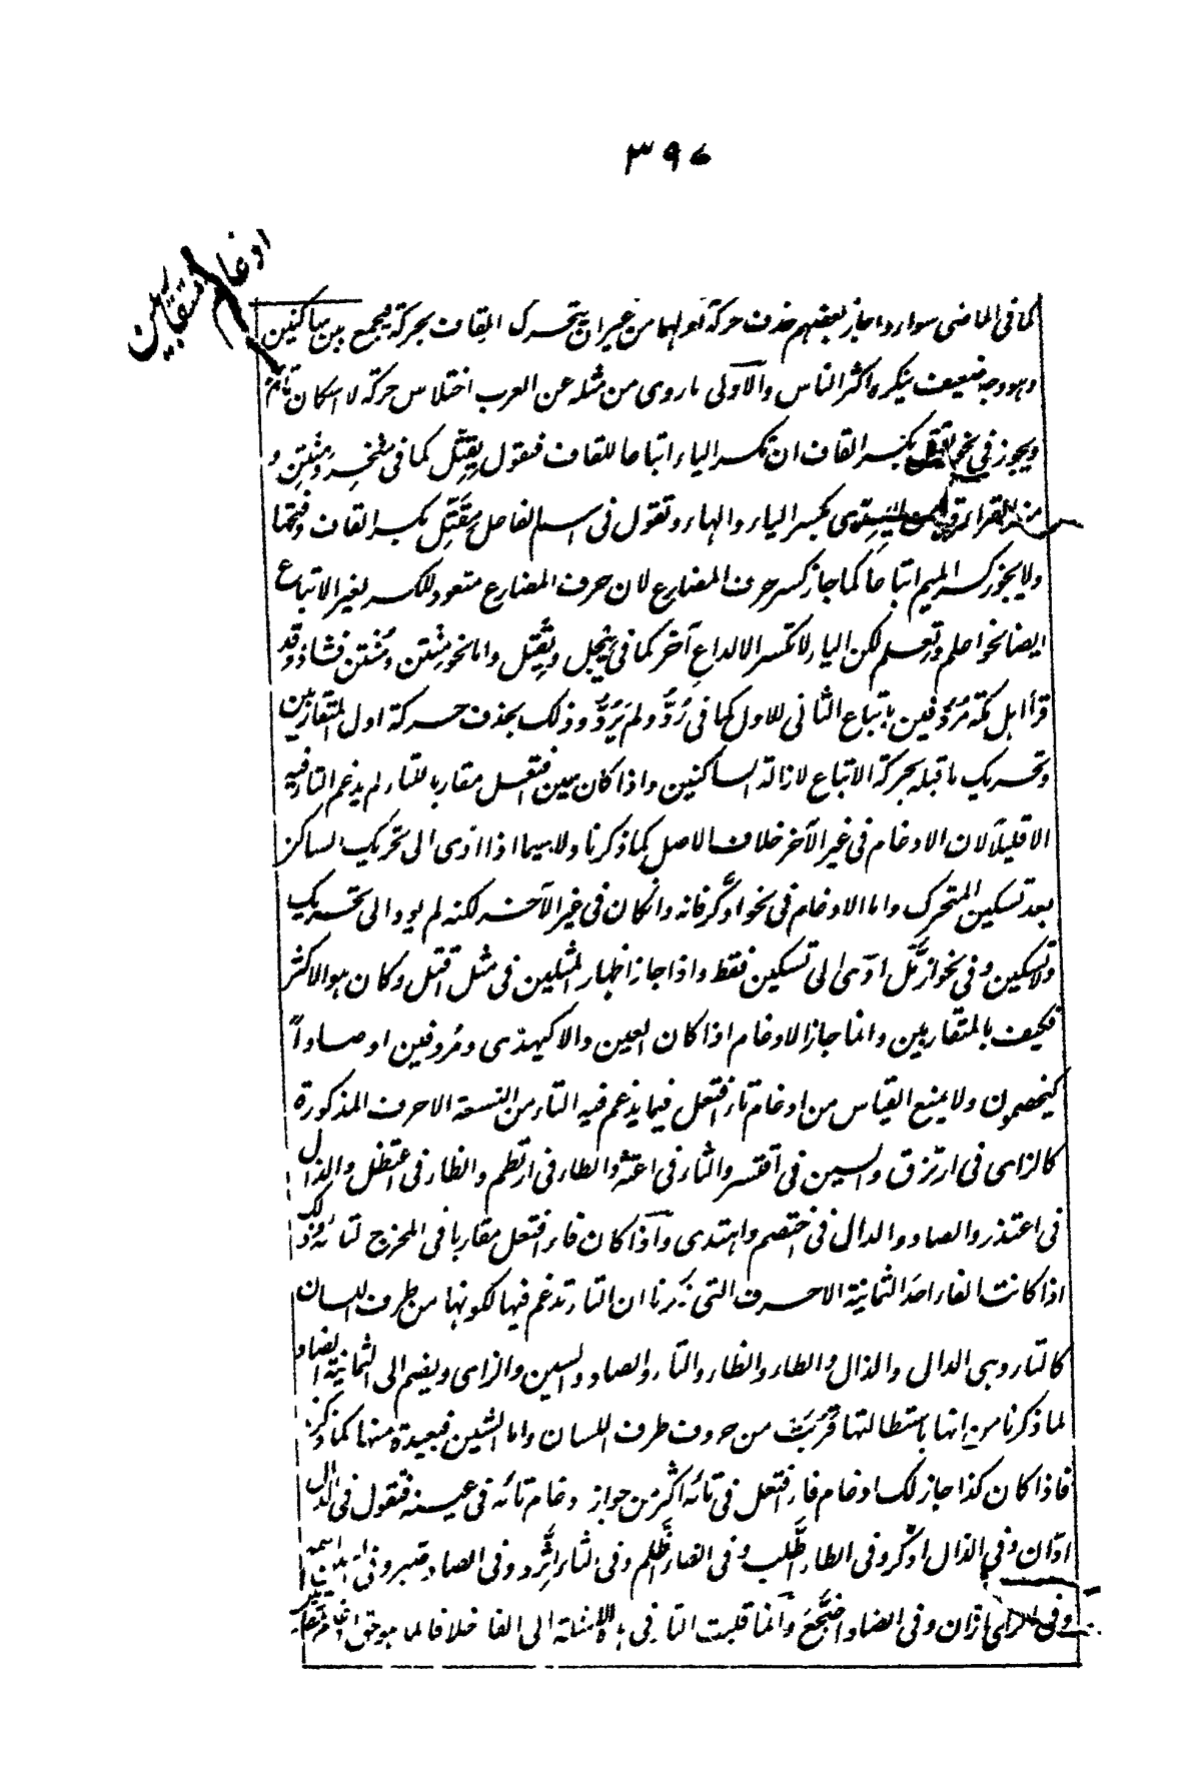 ٣٩٤
ادغام المتقاربين
كما فى الماضى سواء واجاز بعضهم حذف حركة اولهما من غير ان يتحرك القاف بحركة فيجمع بين ساكنين
وهو وجه ضعيف ينكره اكثر الناس والاولى ما روى من مثله عن العرب اختلاس حركة لا اسكان تام
ويجوز فى نحو يقتل بكسر القاف ان تكسر الياء اتباعا للقاف فتقول يِقِتِّل كما فى مِنْخِر ومِنْتِن و
منه القراءة يهدى بكسر الياء والهاء وتقول فى اسم الفاعل مقتّل بكسر القاف وفتحها
ولا يجوز كسر الميم اتباعا كما جاز كسر حرف المضارع لان حرف المضارع متعود للكسر لغير الاتباع
ايضا نحو اعلم وتعلم لكن الياء لا تكسر الا لداع آخر كما فى ييجل ويقتل واما نحو مِنْتِن ومُنْتُن فشاذ وقد
قرأ اهل مكة مُرُدّفين باتباع الثانى للاول كما فى رُدُّ ولم يَرُدُّ وذلك بحذف حركة اول المتقاربين
وتحريك ما قبله بحركة الاتباع لازالة الساكنين واذا كان عين افتعل مقاربا للتاء لم يدغم التاء فيه
الا قليلا لان الادغام فى غير الآخر خلاف الاصل كما ذكرنا ولا سيما اذا ادى الى تحريك الساكن
بعد تسكين المتحرك واما الادغام فى نحو ادّكر فانه وان كان فى غير الآخر لكنه لم يود الى تحريك
وتسكين وفى نحو ازّمّل ادّى الى تسكين فقط واذا جاز اظهار المثلين فى مثل اقتتل وكان هو الاكثر
فكيف بالمتقاربين وانما جاز الادغام اذا كان العين دالا كيهدّى ومُردفين او صاداً
كيخصمون ولا يمنع القياس من ادغام تاء افتعل فيما يدغم فيه التاء من التسعة الاحرف المذكورة
كالزاى فى ارتزق والسين فى اقتسر والثاء فى اعتثر والطاء فى ارتطم والظاء فى اعتظل والذال
فى اعتذر والصاد والدال فى اختصم واهتدى واذا كان فاء افتعل مقاربا فى المخرج لتائه وذلك
اذا كانت الفاء احد الثمانية الاحرف التى ذكرنا ان التاء تدغم فيها لكونها من طرف اللسان
كالتاء وهى الدال والذال والطاء والظاء والثاء والصاد والسين والزاى ويضم الى الثمانية الضاد
لما ذكرنا من انها باستطالتها قربت من حروف طرف اللسان واما الشين فبعيدة منها كما ذكرنا
فاذا كان كذا جاز لك ادغام فاء افتعل فى تائه اكثر من جواز ادغام تائه فى عينه فتقول فى الدال
ادّان وفى الذال اذّكر وفى الطاء اطّلب وفى الظاء اظّلم وفى الثاء اثّرد وفى الصاد اصّبر وفى السين اسّمع
وفى الزاى ازّان وفى الضاد اضّجع وانما قلبت التاء فى هذه الامثلة الى الفاء خلافا لما هو حق ادغام المتقاربين